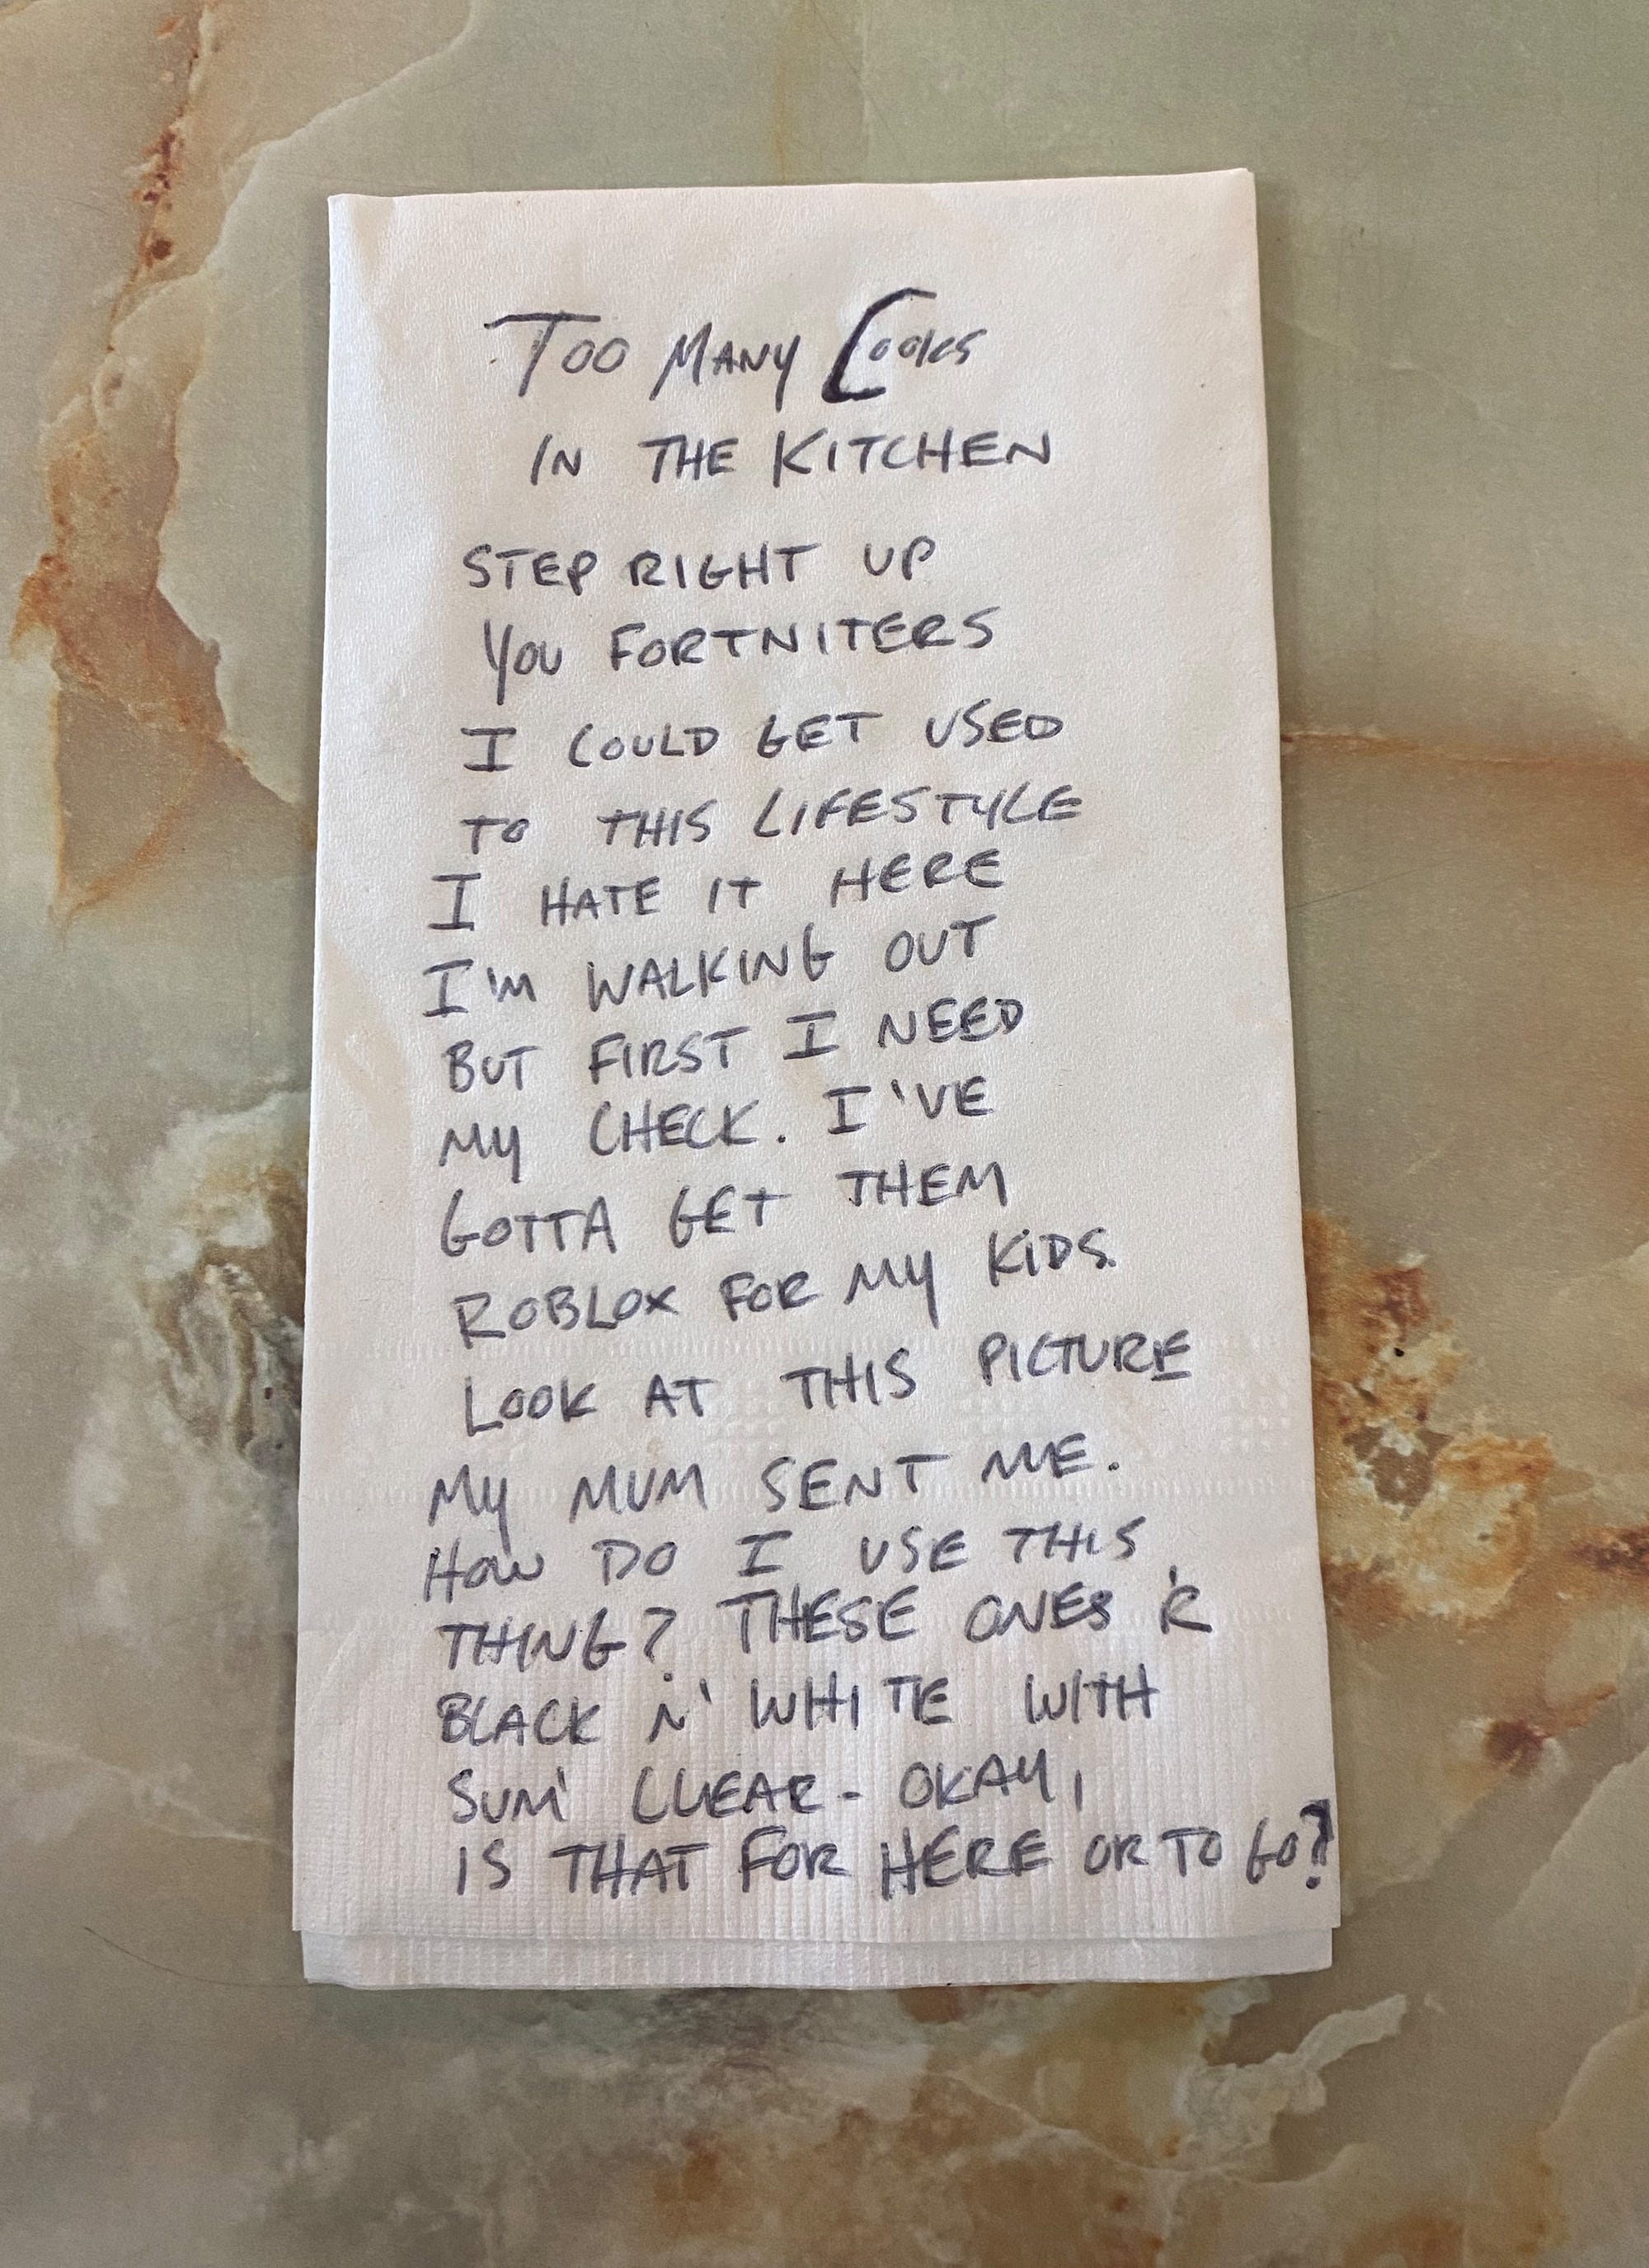 TOO MANY COOKS
IN THE KITCHEN
STEP RIGHT UP
YOU FORTNITERS
I COULD GET USED
TO THIS LIFESTYLE
I HATE IT HERE
I'M WALKING OUT
BUT FIRST I NEED
MY CHECK. I'VE
GOTTA GET THEM
ROBLOX FOR MY KIDS.
LOOK AT THIS PICTURE
MY MUM SENT ME.
HOW DO I USE THIS
THING? THESE ONES 'R
BLACK N' WHITE WITH
SUM' CLEAR - OKAY,
IS THAT FOR HERE OR TO GO?